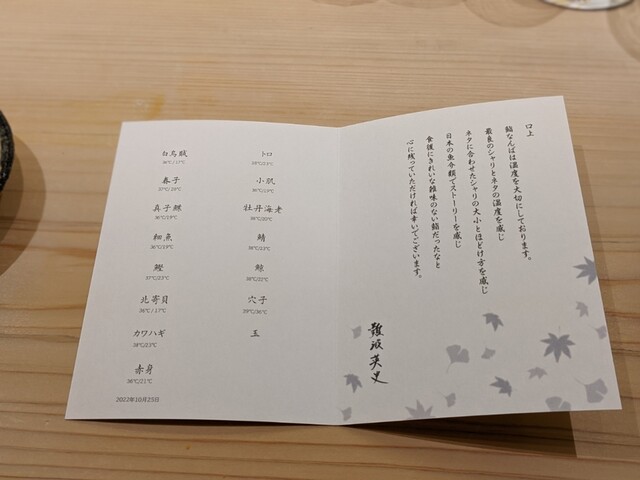 白烏賊
36℃/17℃
春子
37℃/20℃
真子鰈
36℃/19℃
細魚
36℃/19℃
鰹
37℃/23℃
北寄貝
36℃/17℃
カワハギ
38℃/23℃
赤身
38℃/21℃
2022年10月25日
トロ
小肌
36℃/19℃
牡丹海老
38℃/20℃
鯖
38℃/23℃
鯨
38℃/22℃
穴子
39℃/36℃
玉
口上
鮨なんばは温度を大切にしております。
最良のシャリとネタの温度を感じ
ネタに合わせたシャリの大小とほどけ方を感じ
日本の魚介類でストーリーを感じ
食後にきれいな雑味のない鮨だったなと
心に残っていただければ幸いでございます。
難波英史